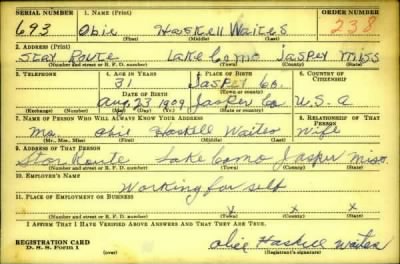 SERIAL NUMBER 1. NAME (Print) ORDER NUMBER
693 Obie Haskell Waites 238
(First) (Middle) (Last)
2. ADDRESS (Print)
Star Route Lake Como Jasper Miss
(Number and street or R. F. D. number) (Town) (County) (State)
3. TELEPHONE 4. AGE IN YEARS 5. PLACE OF BIRTH 6. COUNTRY OF CITIZENSHIP
31 Jasper Co.
DATE OF BIRTH (Town or county)
Aug 23 1909 Jasper Co U.S.A
(Exchange) (Number) (Mo.) (Day) (Yr.) (State or country)
7. NAME OF PERSON WHO WILL ALWAYS KNOW YOUR ADDRESS 8. RELATIONSHIP OF THAT PERSON
Mrs. Obie Haskell Waites Wife
(Mr., Mrs., Miss) (First) (Middle) (Last)
9. ADDRESS OF THAT PERSON
Star Route Lake Como Jasper Miss.
(Number and street or R. F. D. number) (Town) (County) (State)
10. EMPLOYER'S NAME
Working for self
11. PLACE OF EMPLOYMENT OR BUSINESS
X X X
(Number and street or R. F. D. number) (Town) (County) (State)
I AFFIRM THAT I HAVE VERIFIED ABOVE ANSWERS AND THAT THEY ARE TRUE.
REGISTRATION CARD
D. S. S. Form 1
Obie Haskell Waites
(Registrant's signature)